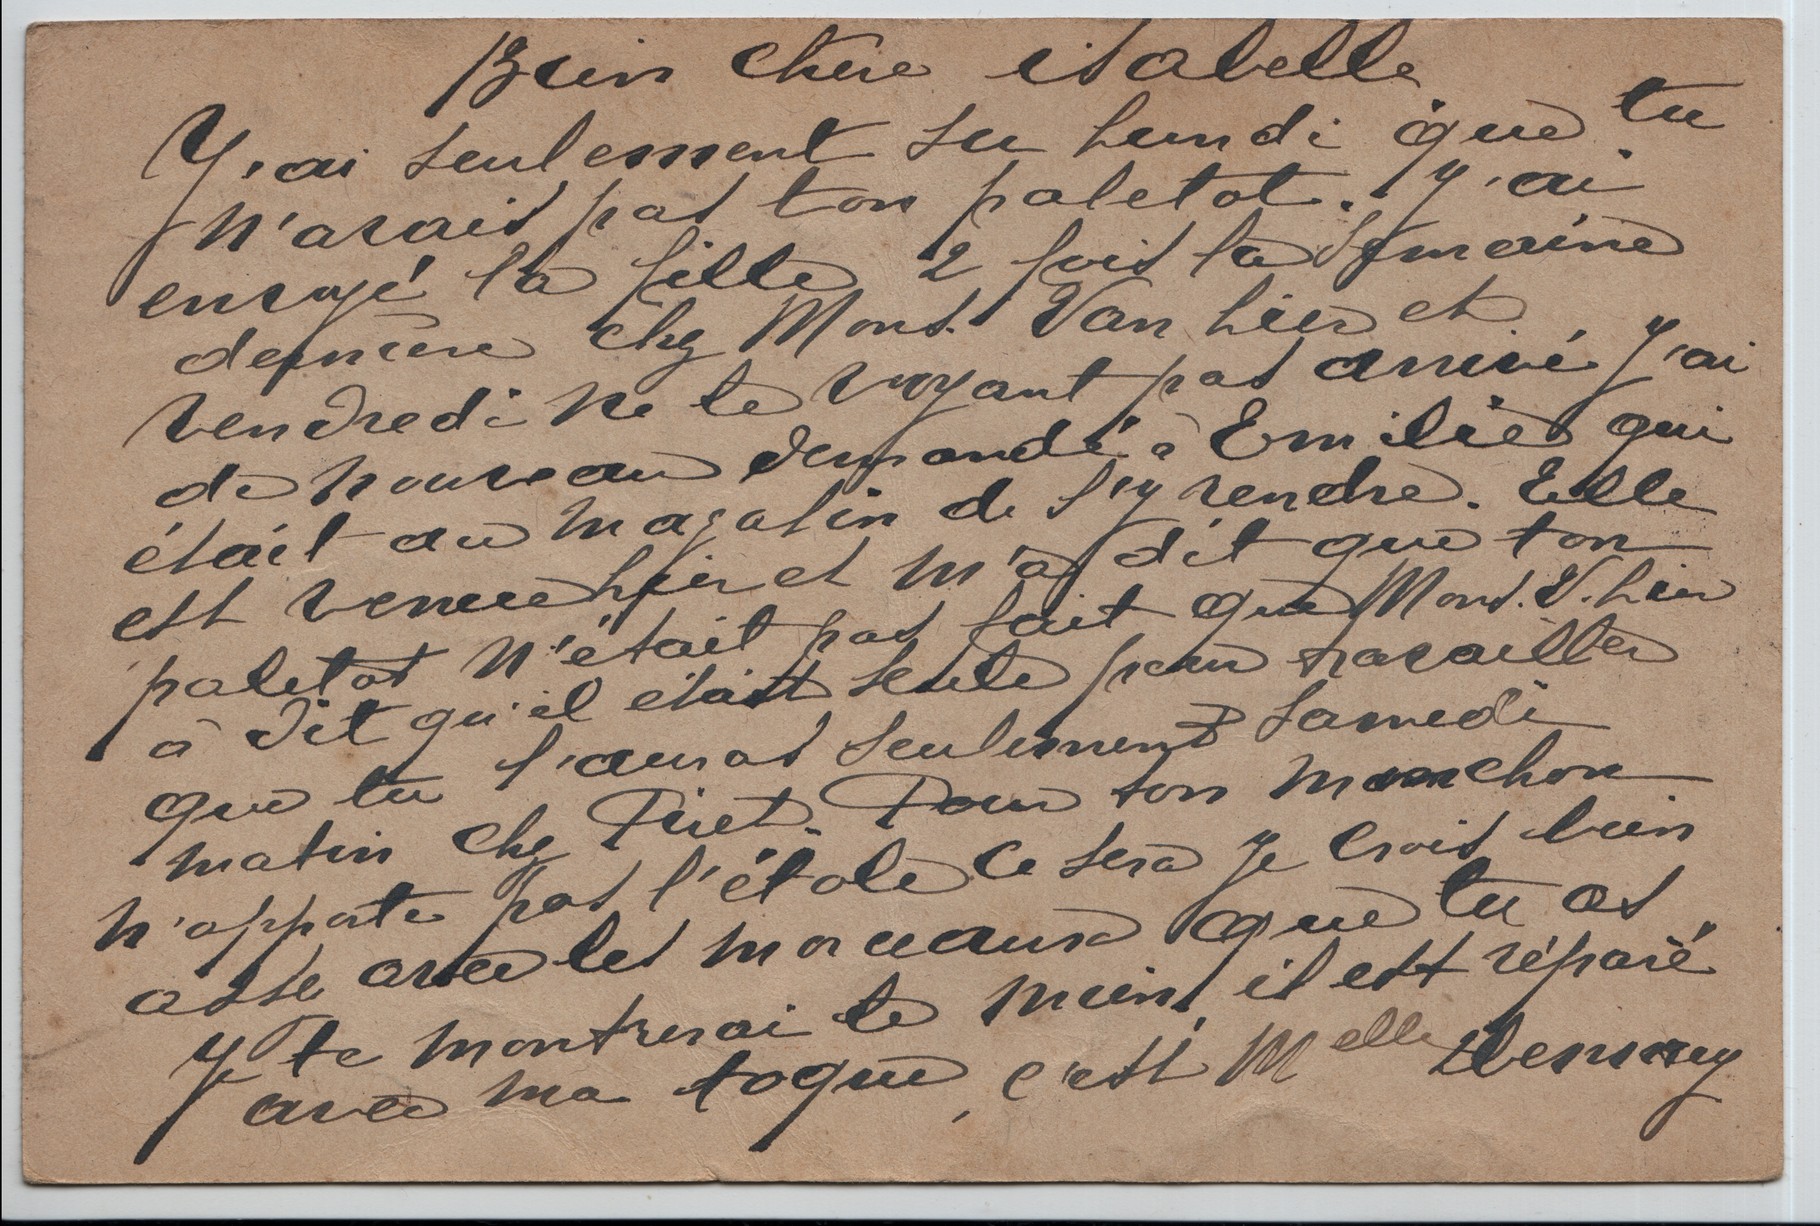 Bien chère isabelle
Y'ai seulement su lundi que tu
n'avais pas ton paletot. Y'ai
envoyé la fille 2 fois la semaine
dernière chez Mons. Van Lier et
vendredi ne le voyant pas arrivé Y'ai
de nouveau demandé à Emilie qui
était au magasin de s'y rendre. Elle
est venue hier et m'a dit que ton
paletot n'était pas fait que Mons. V. Lier
à dit qu'il était seule pour travailler
que tu l'auras seulement Samedi
matin chez Piret. Pour ton manchon
n'apporte pas l'étole ce sera je crois bien
asse avec les morceaux que tu as
Je te montrerai le mien, il est réparé
avec ma toque, c'est Melle